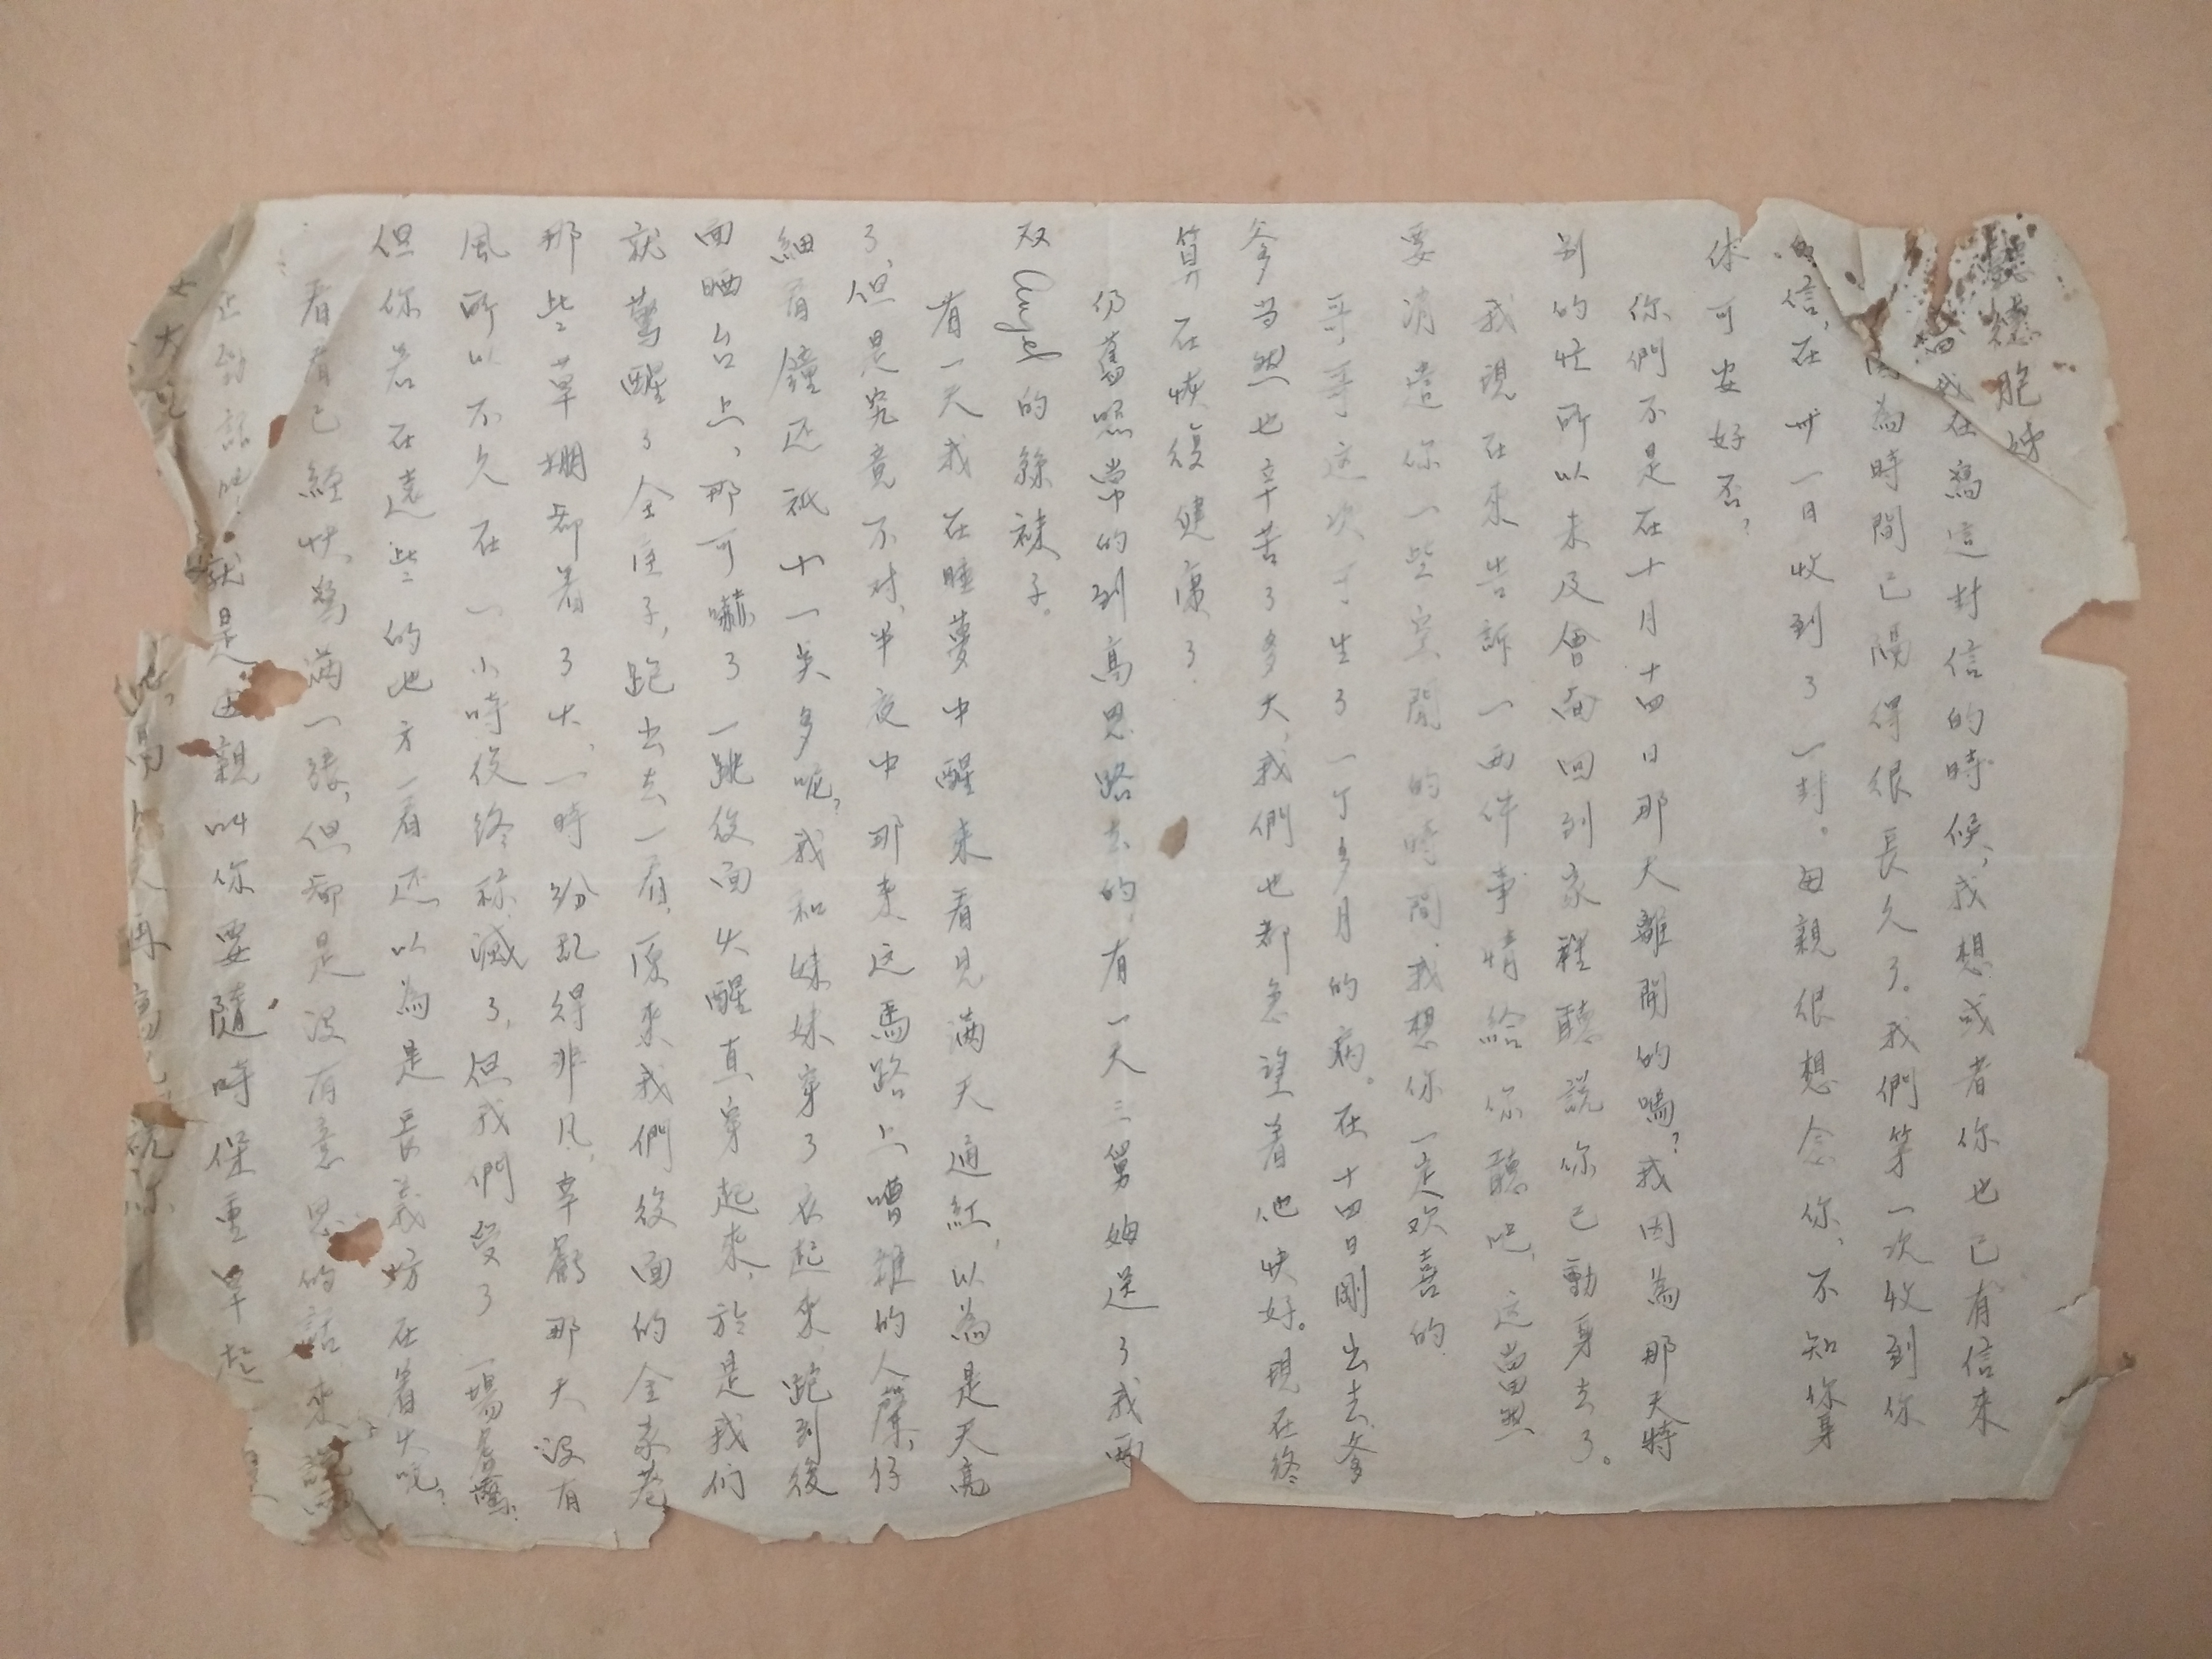 聽德胞姊
我在寫這封信的時候，我想或者你也已有信來
因為時間已隔得很長久了。我們第一次收到你
的信，在卅一日收到了一封。母親很想念你，不知你身
体可安好否？
你們不是在十月十四日那天離開的嗎？我因為那天特
別的忙所以未及會面回到家裡聽說你已動身去了。
我現在來告訴一兩件事情給你聽吧，这當然
要消遣你一些空閒的時間我想你一定欢喜的
哥哥這次了生了一个多月的病。在十四日剛出去，爹
爹当然也辛苦了多天，我們也都急望着他快好。現在終
算在恢復健康了。
仍舊照常的到高恩路去的，有一天三舅姆送了我兩
双Angel的絲襪子。
有一天我在睡夢中醒來看見滿天通紅，以為是天亮
了，但是究竟不对，半夜中那来这馬路上嘈雜的人聲，仔
細看鐘还祇十一点多呢，我和妹妹穿了衣起來，跑到後
面晒台上，那可嚇了一跳後面火醒真穿起來，於是我们
就驚醒了全家子，跑出去一看，原來我們後面的全家巷
那些草棚都着了火，一時紛乱得非凡，幸虧那天没有
風所以不久在一小時後終称滅了，但我們受了一場虛驚，
但你若在遠些的地方一看还以為是長義坊在着火呢？
看看已經快寫滿一張，但都是没有意思的話，來說
就是母親叫你要隨時保重早起
再寫 祝你